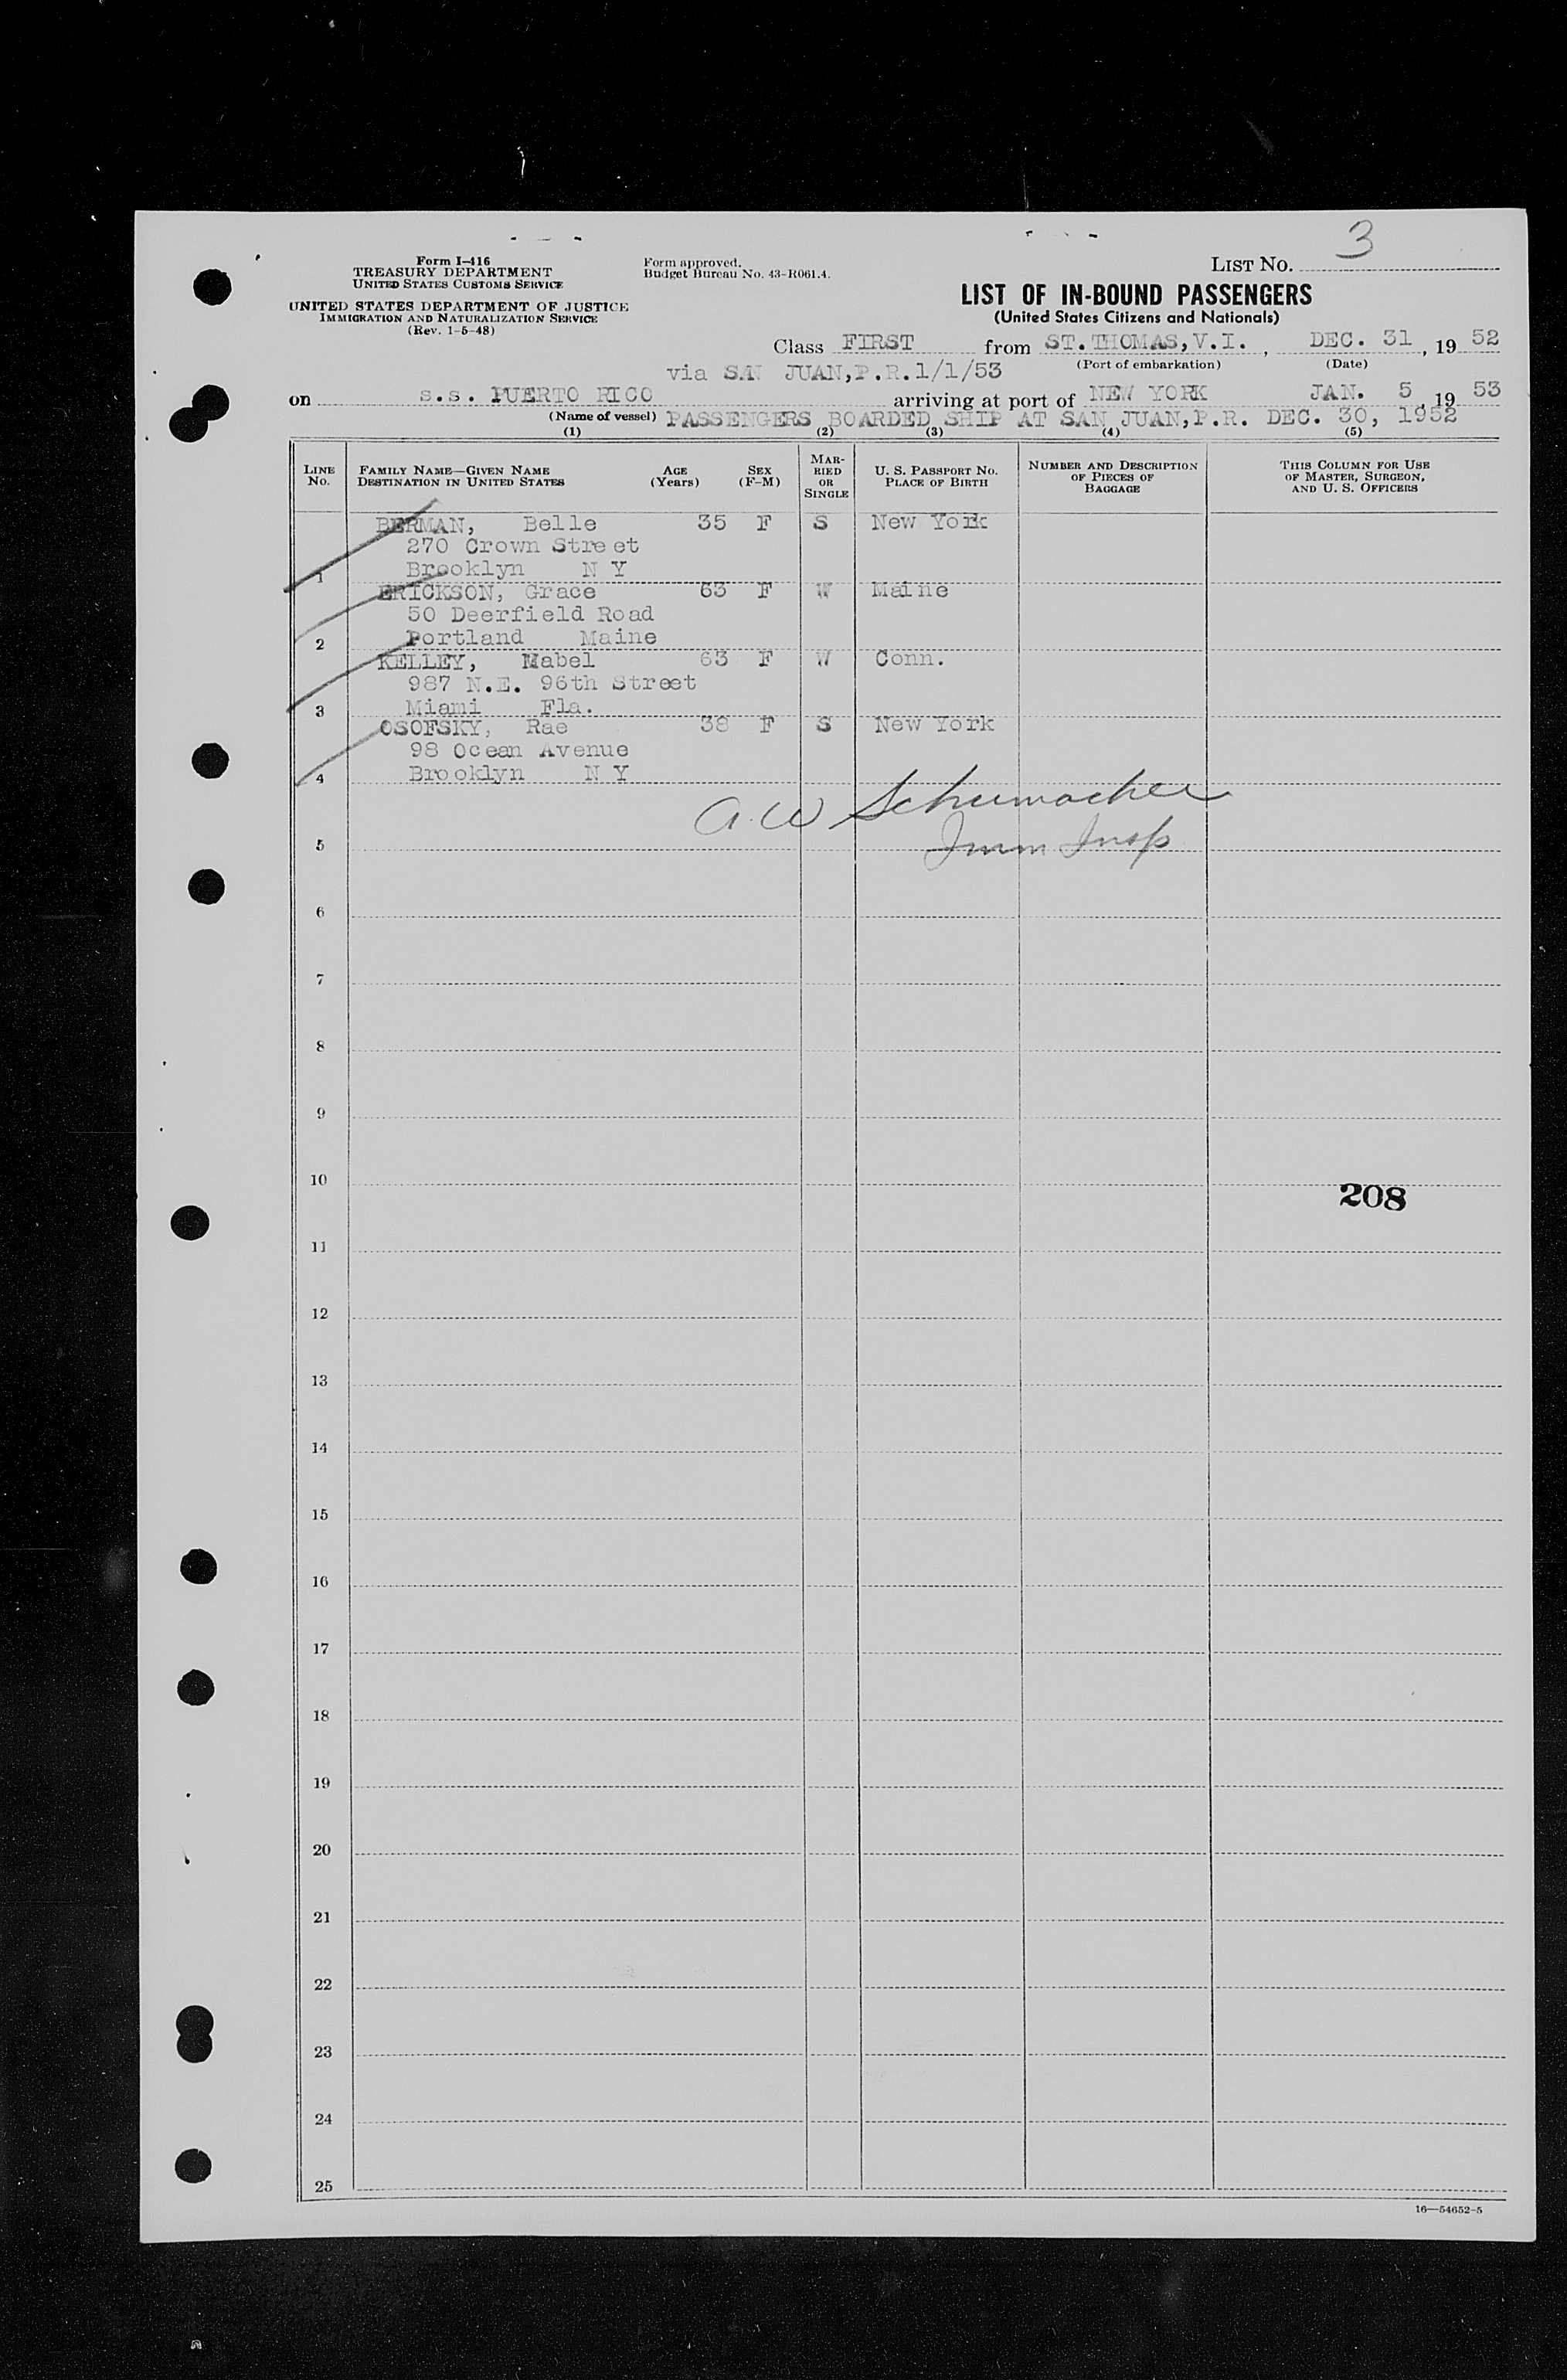 3
Form I-416
TREASURY DEPARTMENT
UNITED STATES CUSTOMS SERVICE
UNITED STATES DEPARTMENT OF JUSTICE
IMMIGRATION AND NATURALIZATION SERVICE
(Rev. 1-5-48)
Form approved.
Budget Bureau No. 43-R061.4.
LIST NO.
LIST OF IN-BOUND PASSENGERS
(United States Citizens and Nationals)
Class FIRST from ST. THOMAS, V.I. , DEC. 31 , 19 52
(Port of embarkation) (Date)
via SAN JUAN, P.R. 1/1/53
on s.s. PUERTO RICO arriving at port of NEW YORK JAN. 5 , 19 53
(Name of vessel) PASSENGERS BOARDED SHIP AT SAN JUAN, P.R. DEC. 30, 1952
(1) (2) (3) (4) (5)
LINE NO. FAMILY NAME—GIVEN NAME DESTINATION IN UNITED STATES AGE (Years) SEX (F-M) MAR-RIED OR SINGLE U. S. PASSPORT NO. PLACE OF BIRTH NUMBER AND DESCRIPTION OF PIECES OF BAGGAGE THIS COLUMN FOR USE OF MASTER, SURGEON, AND U. S. OFFICERS
BERMAN, Belle 35 F S New York
270 Crown Street
1 Brooklyn N Y
ERICKSON, Grace 63 F W Maine
50 Deerfield Road
2 Portland Maine
KELLEY, Mabel 63 F W Conn.
987 N.E. 96th Street
3 Miami Fla.
OSOFSKY, Rae 38 F S New York
98 Ocean Avenue
4 Brooklyn N Y
A. W Schumacher
5 Imm Insp
6
7
8
9
10 208
11
12
13
14
15
16
17
18
19
20
21
22
23
24
25
16—54652-5